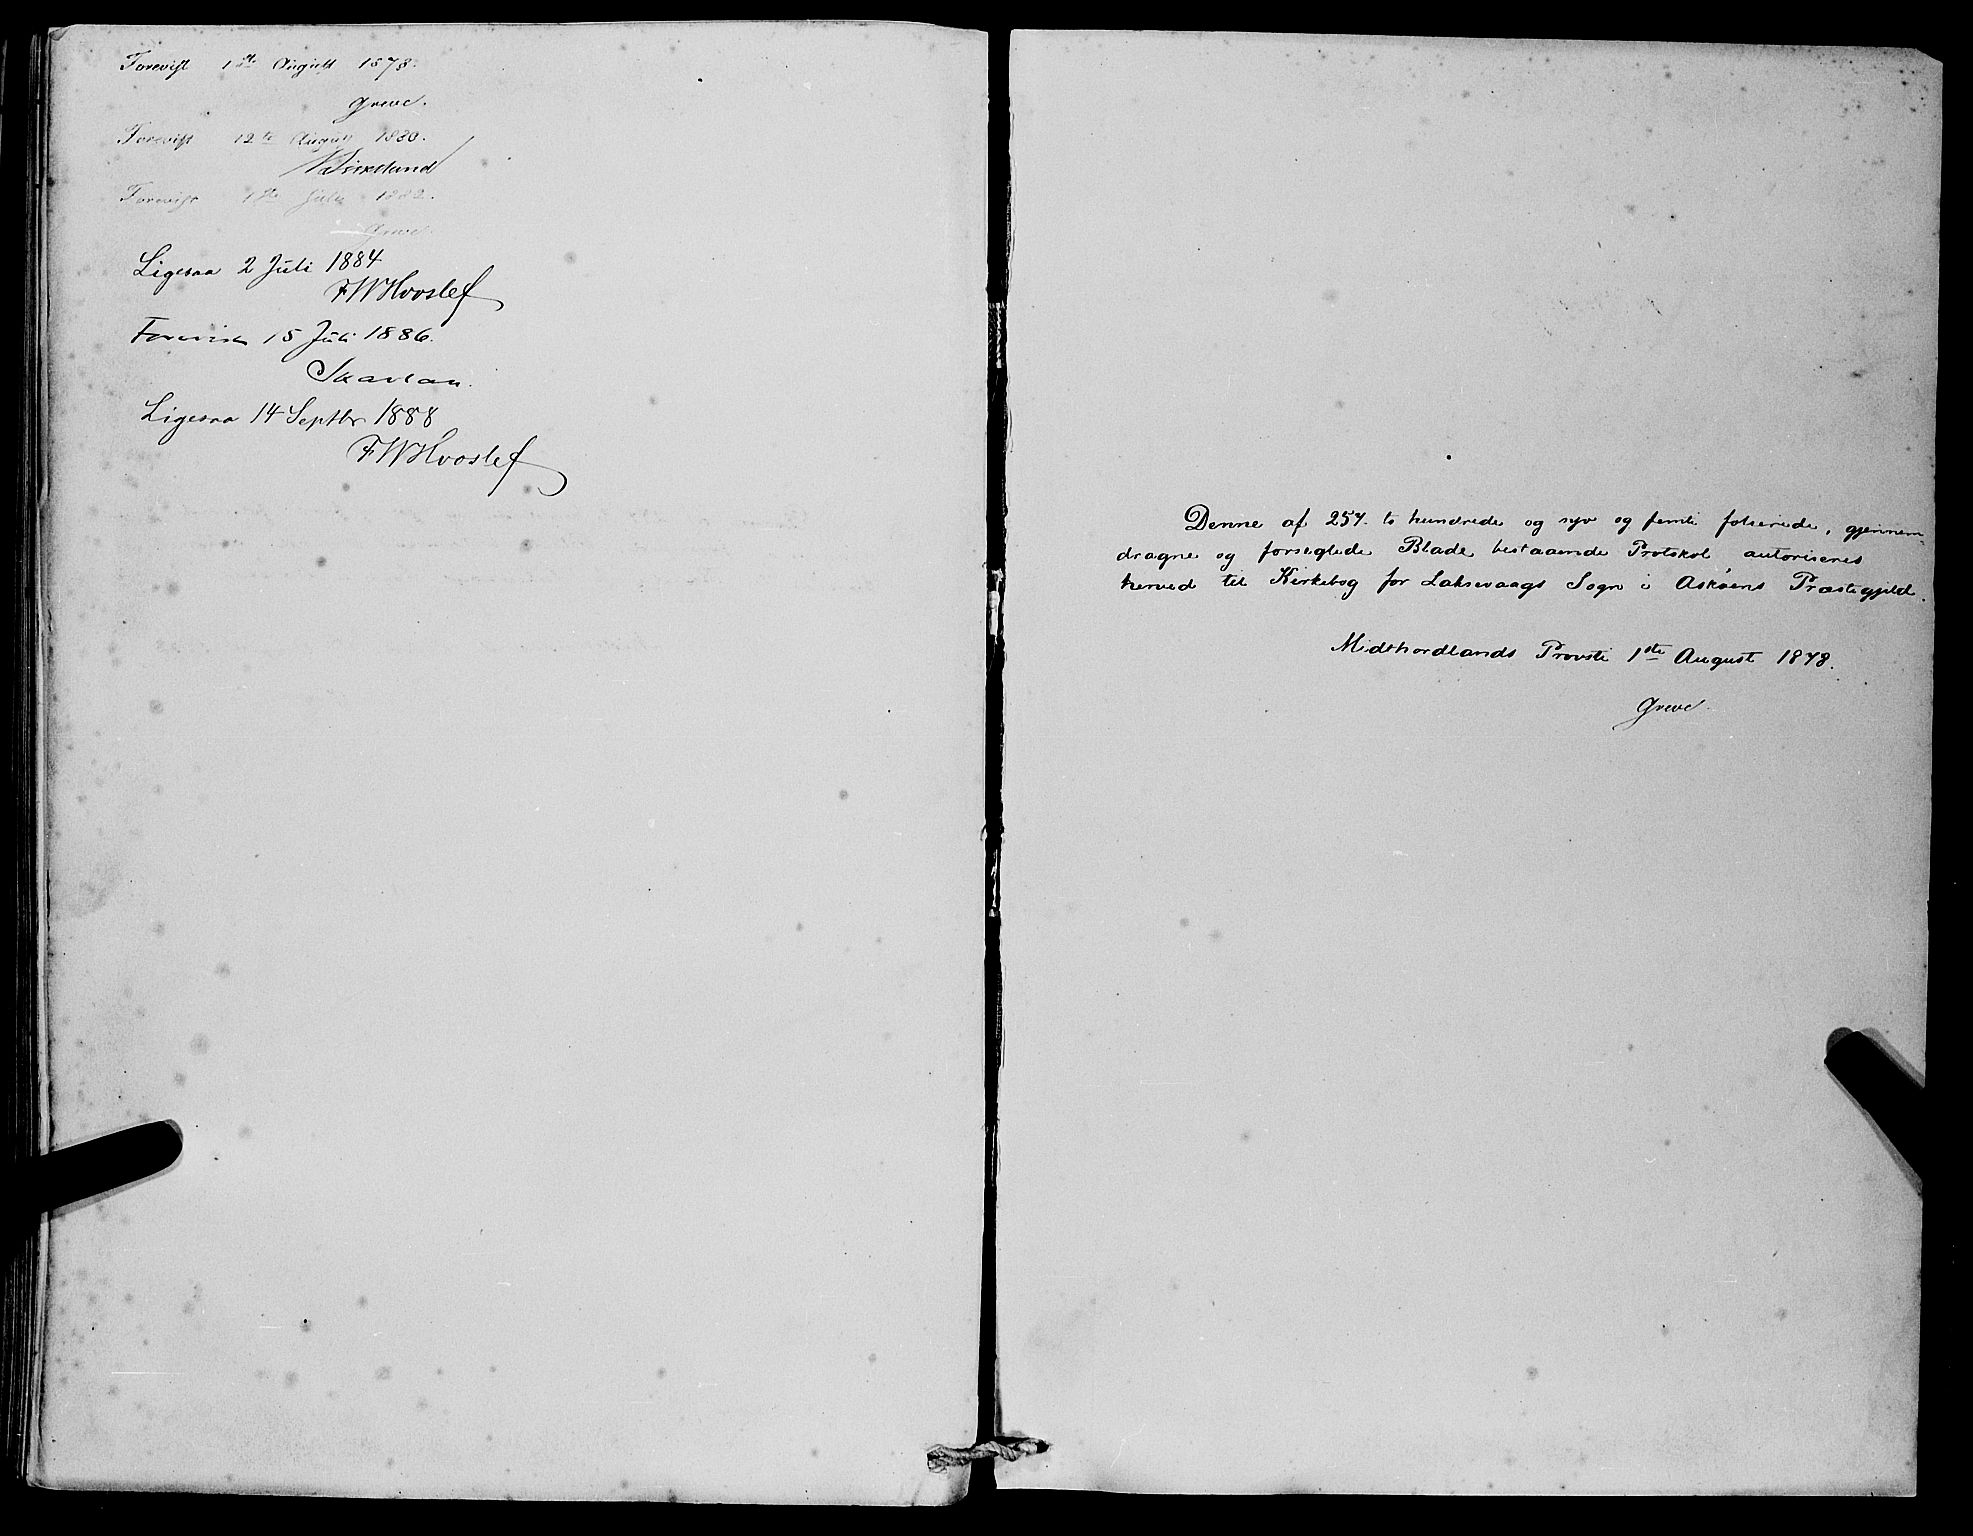 Forevist 1ste August 1878.
Greve.
Forevist 12te August 1880.
Birkeland
Forevist 1ste Juli 1882.
Greve.
Ligesaa 2 Juli 1884
FW Hvoslef
Forevist 15 Juli 1886.
Skavlan.
Ligesaa 14 Septbr 1888
FW Hvoslef
Denne af 257. to hundrede og syv og femti folierede, gjennem-
dragne og forseglede Blade bestaaende Protokol autoriseres
herved til Kirkebog for Laksevaags Sogn i Askøens Præstegjeld.
Midthordlands Provsti 1ste August 1878.
Greve.